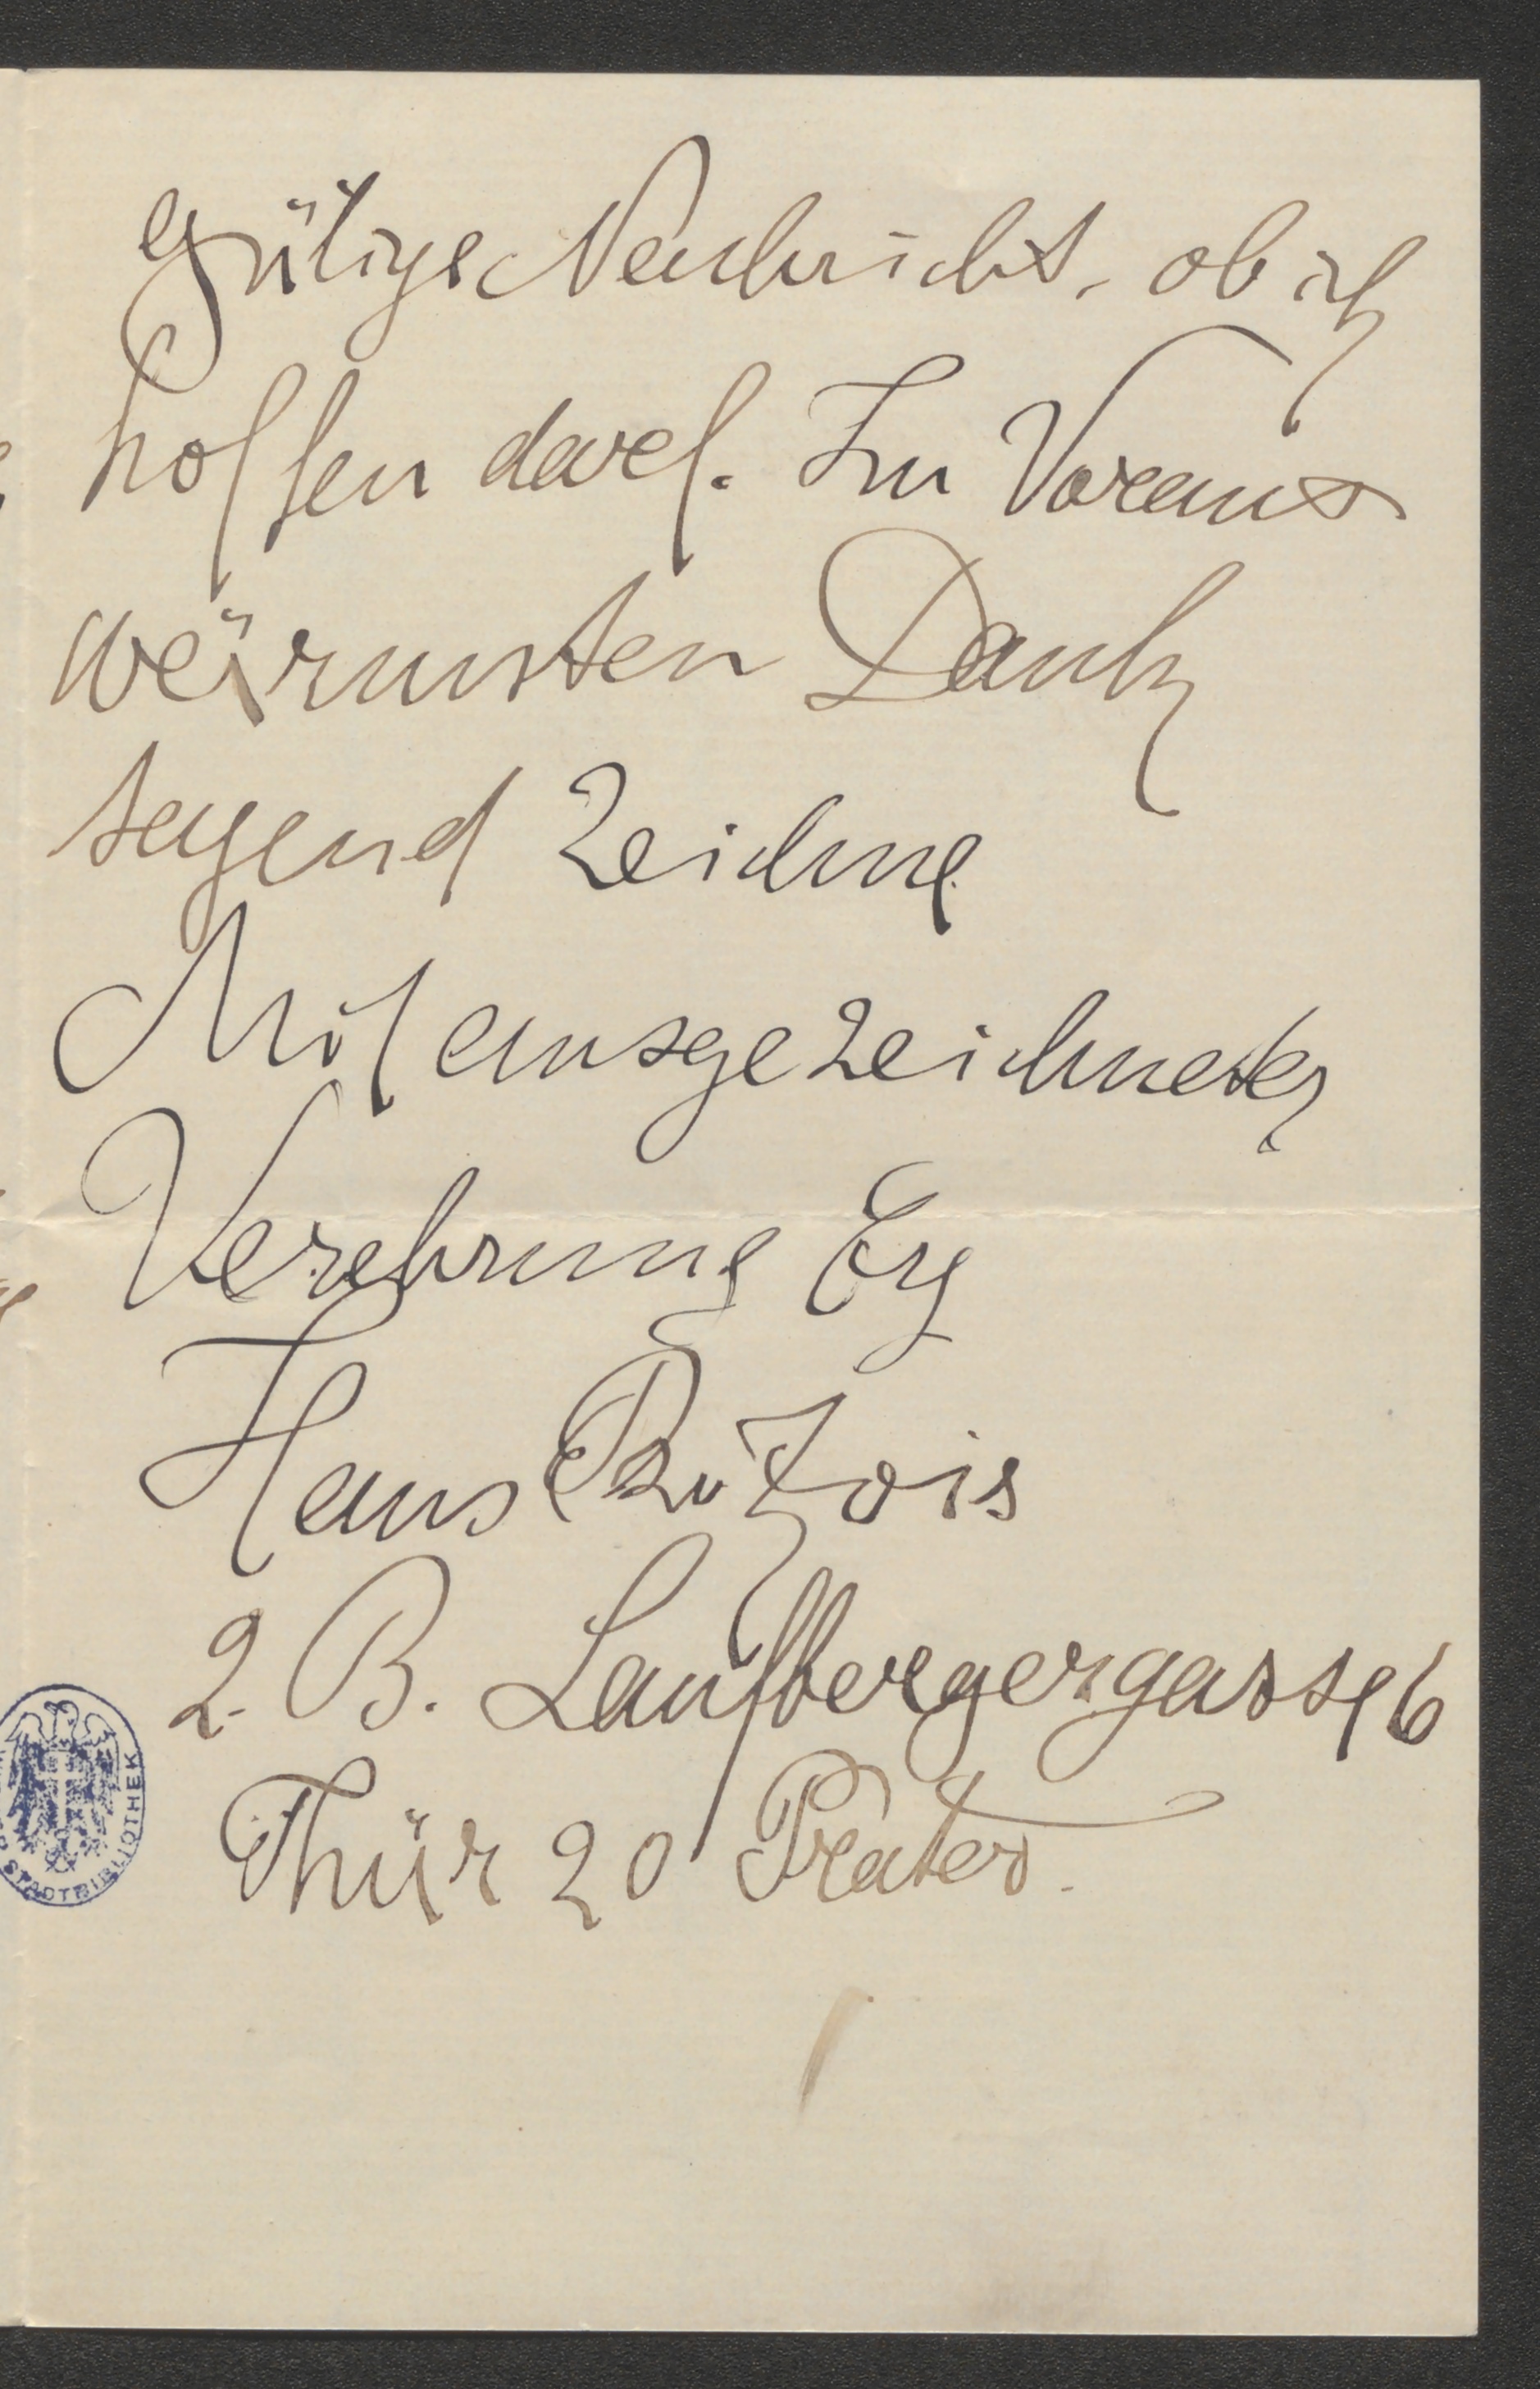 gütige Nachricht, ob ich
hoffen darf. Im Voraus
wärmsten Dank
sagend zeichne
Mit ausgezeichneter
Verehrung Erg
Hans B. Zois
2. B. Laufbergergasse 6
Thür 20 Prater.
STADTBIBLIOTHEK